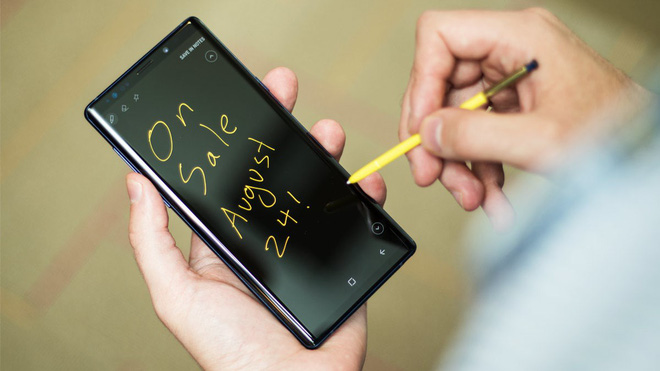 SAVE IN NOTES
On
Sale
August
24!